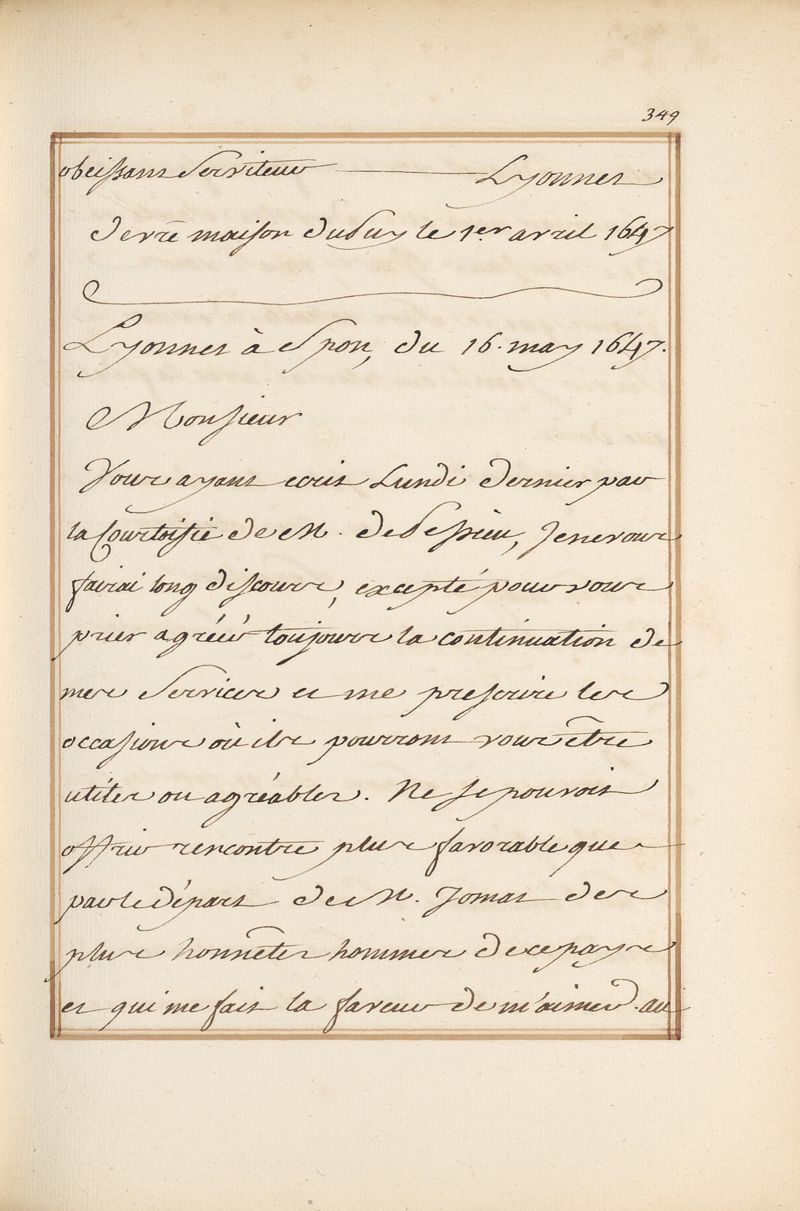 349
obeissant Serviteur Lyonnet
de vre maison du Puy le 1er avril 1647
Lyonnet à Spon, du 16. may 1647.
Monsieur
Vous ayant ecrit Lundi dernier par
la Courtoisie de M. de Pessieu, Je ne vous
fairai long discours, excepté pour vous
prier agréér toujours la continuation de
mes Services et me prescrire les
occasions où ils pourront vous être
utiles ou agréables. Ne se pouvoit
offrir rencontre plus favorable que
par le départ de M. Jomat des
plus honnêtes hommes de ce pays
et qui me fait la faveur de m'aimer. au